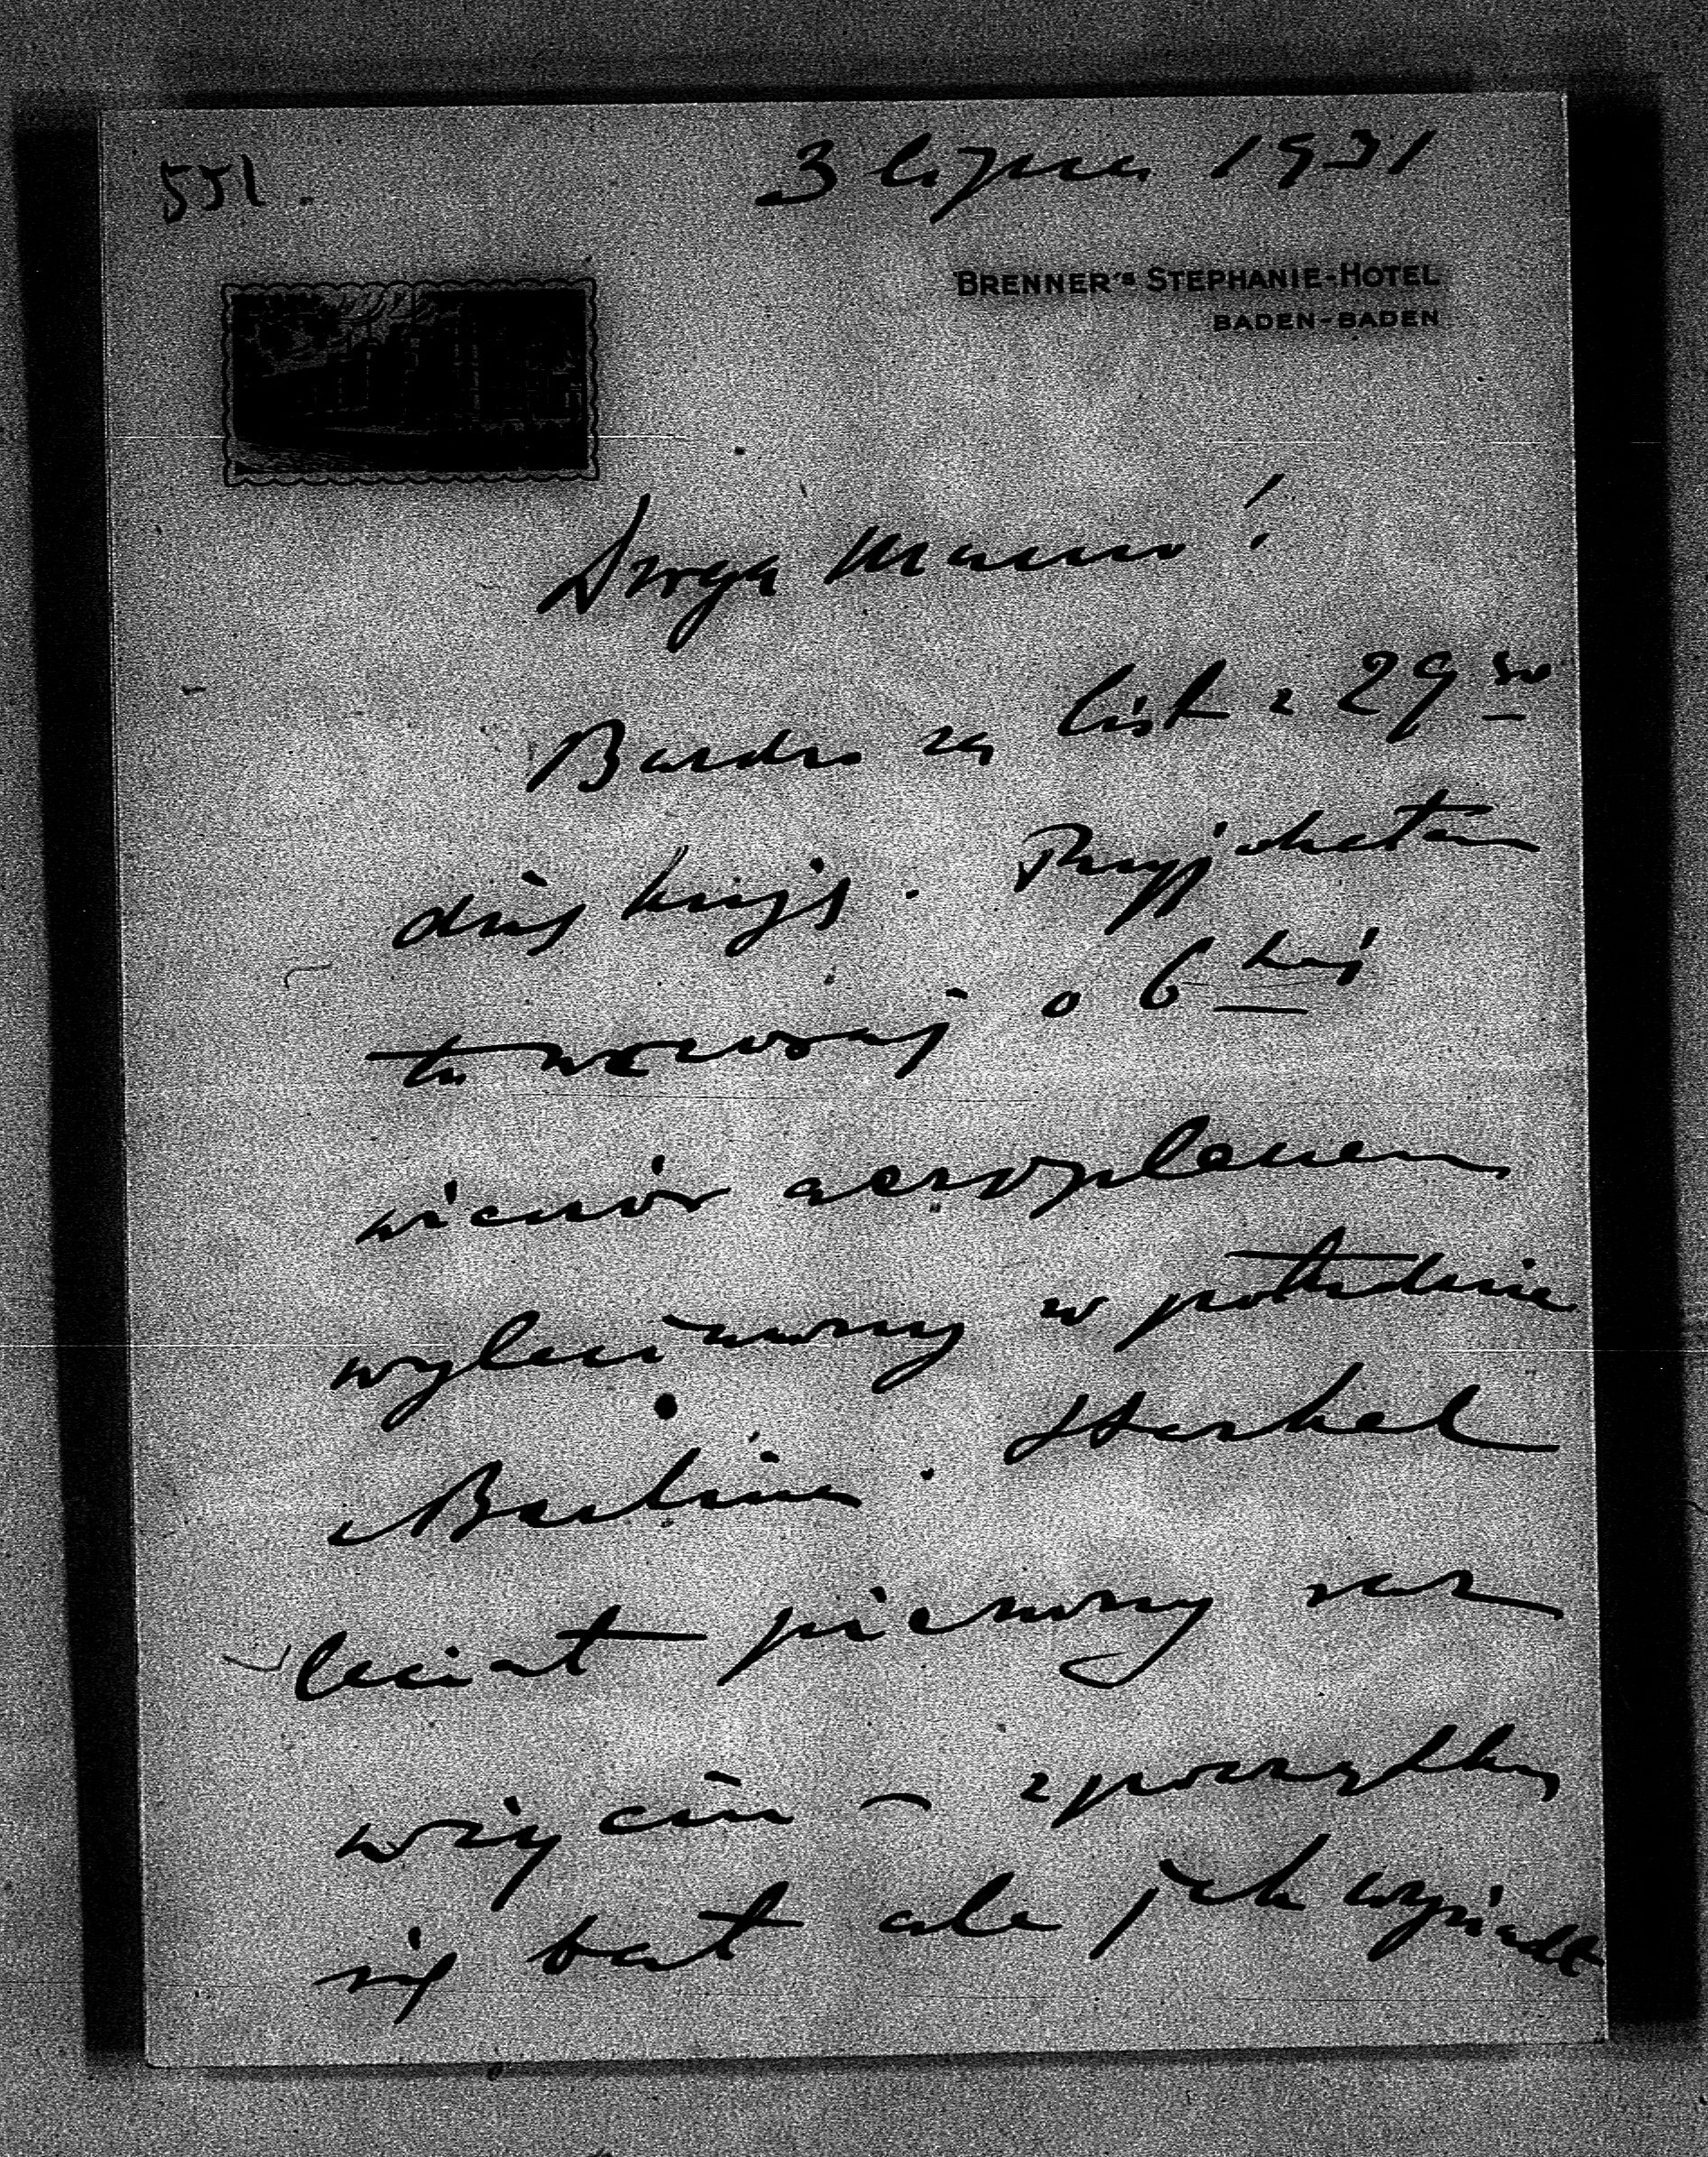 551.
3 lipca 1931
BRENNER'S STEPHANIE-HOTEL
BADEN-BADEN
Droga Mamo!
Bardzo za list z 29 go
dziękuję. Przyjechałem
tu wczoraj o 6 tej
wieczór aeroplanem
wyleciawszy w południe
z Berlina. Heskel
leciał pierwszy raz
w życiu – z początku
się bał ale jak wypadł